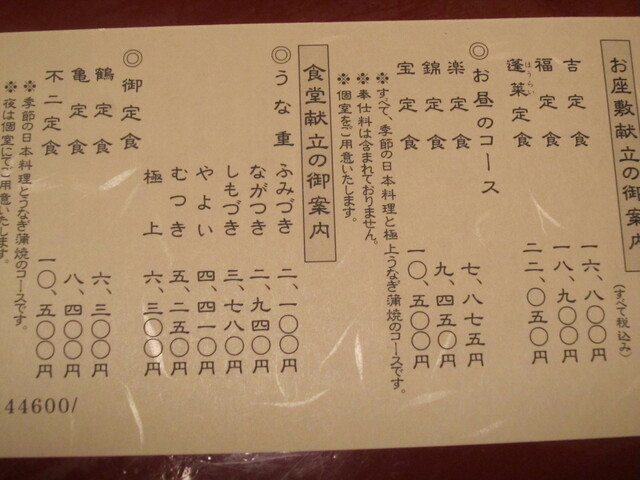 お座敷献立の御案内
(すべて税込み)
吉定食 一六、八〇〇円
福定食 一八、九〇〇円
ほうらい
蓬莱定食 二二、〇五〇円
◎お昼のコース
楽定食 七、八七五円
錦定食 九、四五〇円
宝定食 一〇、五〇〇円
※すべて、季節の日本料理と極上うなぎ蒲焼のコースです。
※奉仕料は含まれておりません。
※個室をご用意いたします。
食堂献立の御案内
◎うな重 ふみづき 二、一〇〇円
ながつき 二、九四〇円
しもづき 三、七八〇円
やよい 四、四一〇円
むつき 五、二五〇円
極上 六、三〇〇円
◎御定食
鶴定食 六、三〇〇円
亀定食 八、四〇〇円
不二定食 一〇、五〇〇円
※季節の日本料理とうなぎ蒲焼のコースです。
※夜は個室にてご用意いたします。
44600/